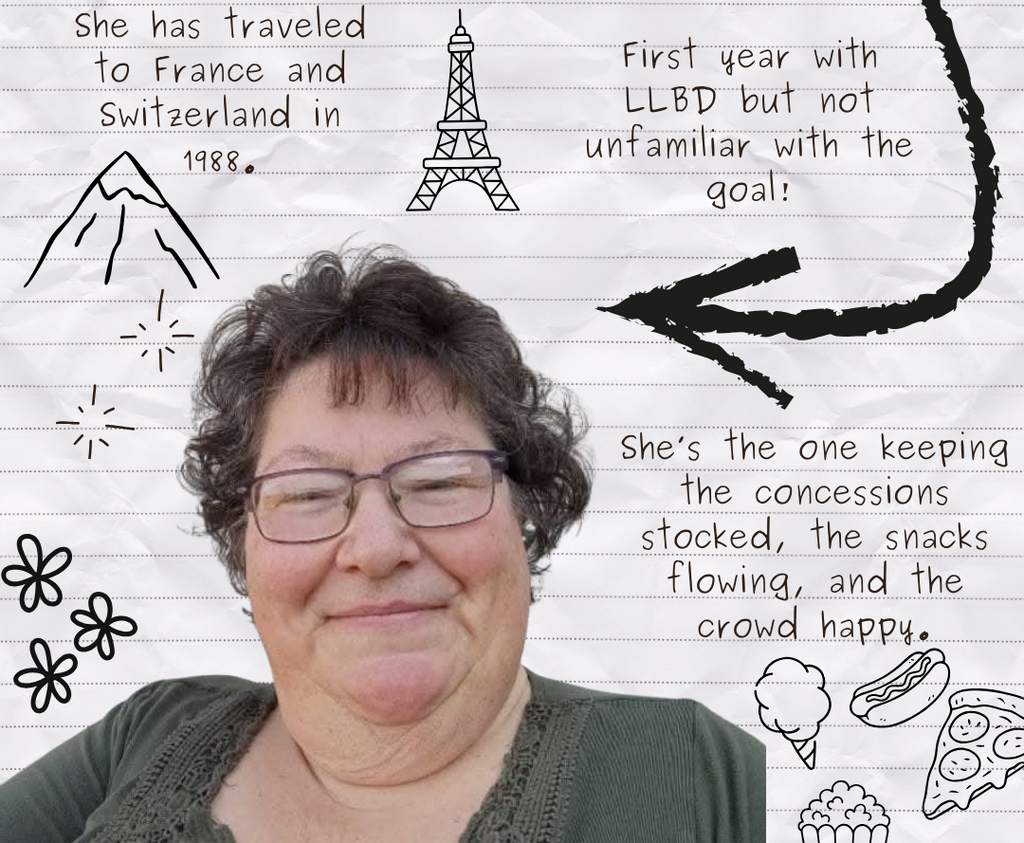 She has traveled
to France and
Switzerland in
1988.
First year with
LLBD but not
unfamiliar with the
goal!
She's the one keeping
the concessions
stocked, the snacks
flowing, and the
crowd happy.